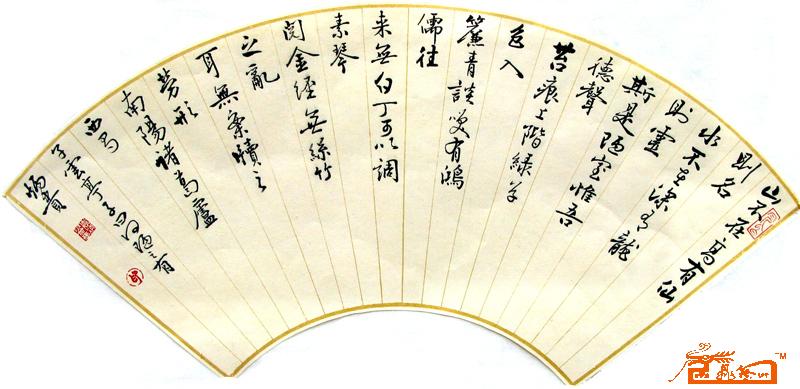 山不在高有仙
則名
水不在深有龍
則靈
斯是陋室惟吾
德聲
苔痕上階綠草
色入
簾青談笑有鴻
儒往
來無白丁可以調
素琴
閱金經無絲竹
之亂
耳無案牘之
勞形
南陽諸葛廬
西蜀
子雲亭子曰何陋之有